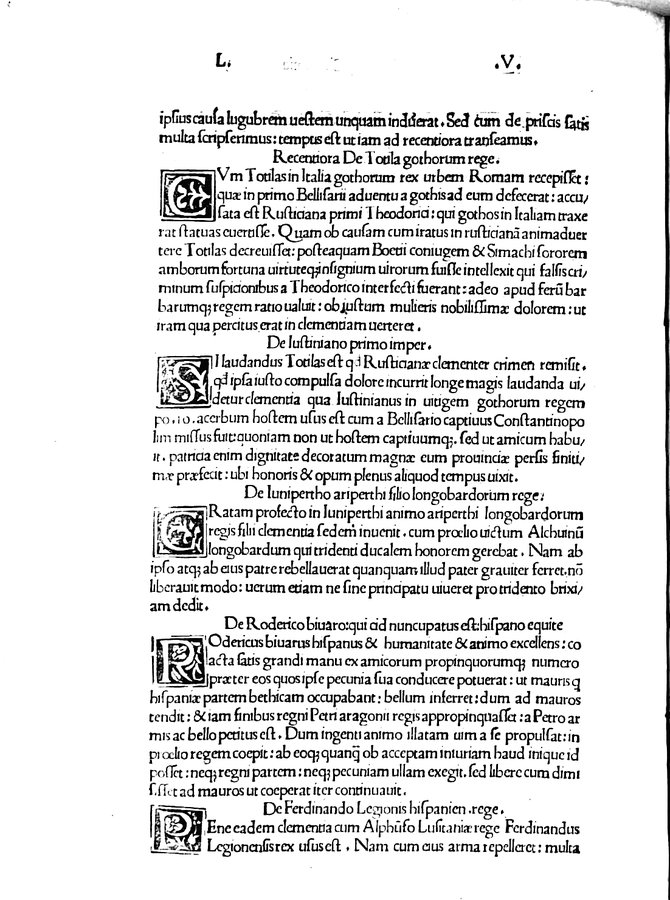 L. .V.
ipsius causa lugubrem uestem unquam induerat. Sed cum de priscis satis
multa scripserimus: tempus est ut iam ad recentiora transeamus.
Recentiora De Totila gothorum rege.
CVm Totilas in Italia gothorum rex urbem Romam recepisset:
quæ in primo Bellisarii aduentu a gothis ad eum defecerat: accu/
sata est Rusticiana primi Theodorici: qui gothos in Italiam traxe
rat statuas euertisse. Quam ob causam cum iratus in rusticianã animaduer
tere Totilas decreuisset: posteaquam Boetii coniugem & Simachi sororem
amborum fortuna uirtuteq; insignium uirorum fuisse intellexit qui falsis cri/
minum suspicionibus a Theodorico interfecti fuerant: adeo apud ferũ bar
barumq; regem ratio ualuit: ob iustum mulieris nobilissimæ dolorem: ut
iram qua percitus erat in clementiam uerteret.
De Iustiniano primo imper.
SI laudandus Totilas est qđ Rusticianæ clementer crimen remisit.
qđ ipsa iusto compulsa dolore incurrit longe magis laudanda ui/
detur clementia qua Iustinianus in uitigem gothorum regem
acerbum hostem usus est cum a Bellisario captiuus Constantinopo
lim missus fuit: quoniam non ut hostem captiuumq;. sed ut amicum habu/
it. patricia enim dignitate decoratum magnæ eum prouinciæ persis finiti/
mæ præfecit: ubi honoris & opum plenus aliquod tempus uixit.
De Iunipertho ariperthi filio longobardorum rege:
GRatam profecto in Iuniperthi animo ariperthi longobardorum
regis filii clementia sedem inuenit. cum prœlio uictum Alchuinũ
longobardum qui tridenti ducalem honorem gerebat. Nam ab
ipso atq; ab eius patre rebellauerat quanquam illud pater grauiter ferret. nõ
liberauit modo: uerum etiam ne sine principatu uiueret pro tridento brixi/
am dedit.
De Roderico biuaro: qui cid nuncupatus est: hispano equite
ROdericus biuarus hispanus & humanitate & animo excellens: co
acta satis grandi manu ex amicorum propinquorumq; numero
præter eos quos ipse pecunia sua conducere potuerat: ut mauris q
hispaniæ partem bethicam occupabant: bellum inferret: dum ad mauros
tendit: & iam finibus regni Petri aragonii regis appropinquasset: a Petro ar
mis ac bello petitus est. Dum ingenti animo illatam uim a se propulsat: in
prœlio regem coepit: ab eoq; quanq̃ ob acceptam iniuriam haud inique id
posset: neq; regni partem: neq; pecuniam ullam exegit. sed libere cum dimi
sisset ad mauros ut coeperat iter continauit.
De Ferdinando Legionis hispanien. rege.
PEne eadem clementia cum Alphũso Lusitaniæ rege Ferdinandus
Legionensis rex usus est. Nam cum eius arma repelleret: multa